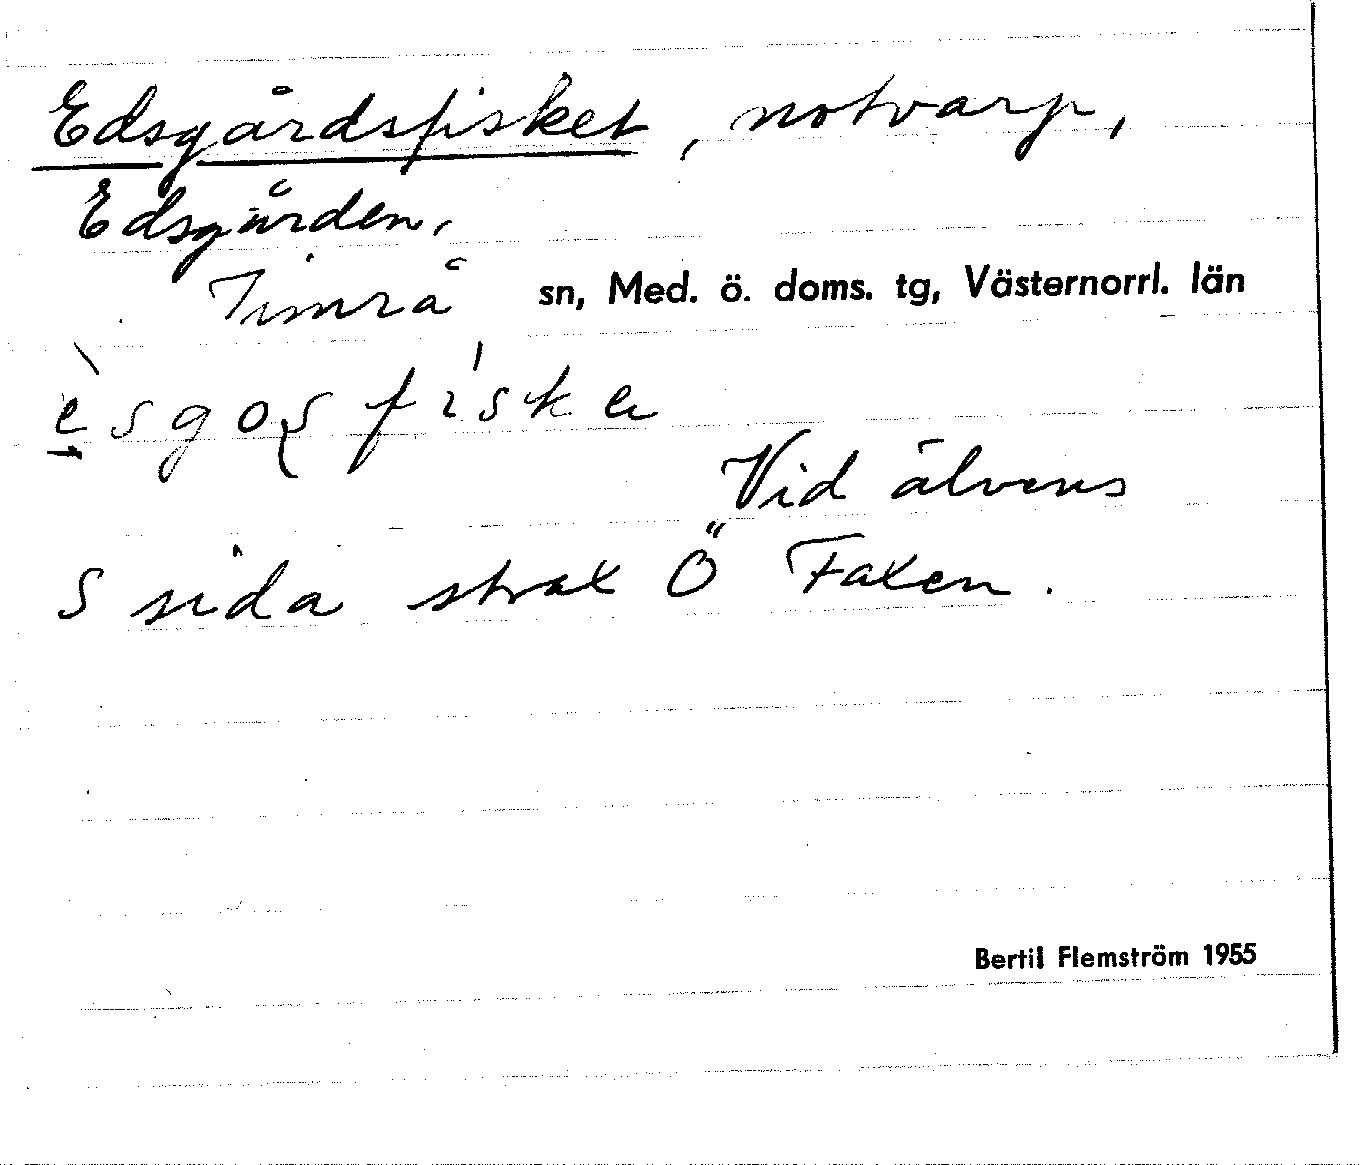 Edsgårdsfisket, notvarp,
Edsgården,
Timrå sn, Med. ö. doms. tg, Västernorrl. län
Vid älvens
S sida strax Ö Faxen.
Bertil Flemström 1955